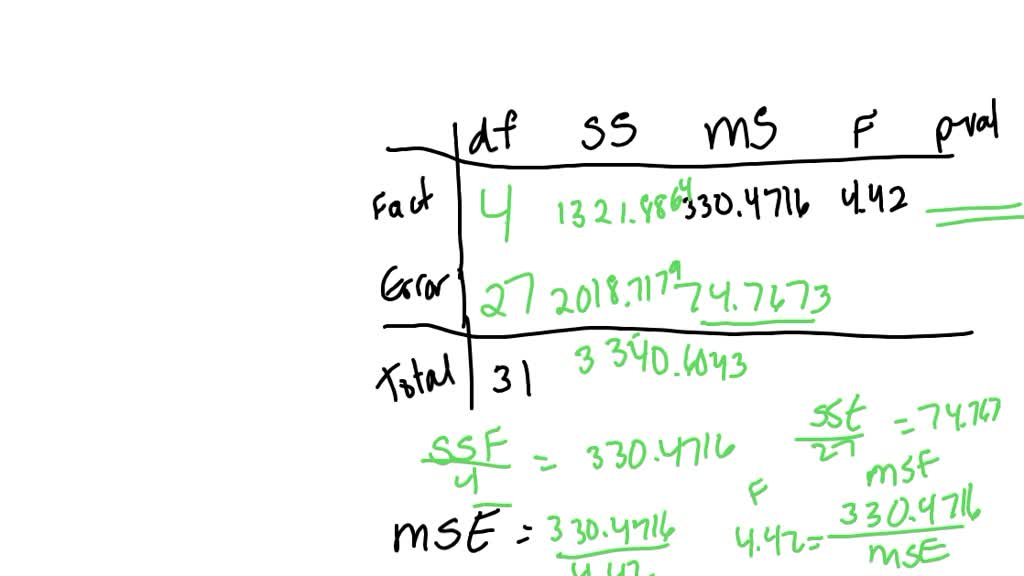 df SS MS F p-val
Fact 4 1321.8864 330.4716 4.42
Error 27 2018.7179 74.7673
Total 31 3340.6043
SSF/4 = 330.4716
SSE/27 = 74.767
MSE = 330.4716/4.42
F
4.42 = MSF 330.4716/MSE